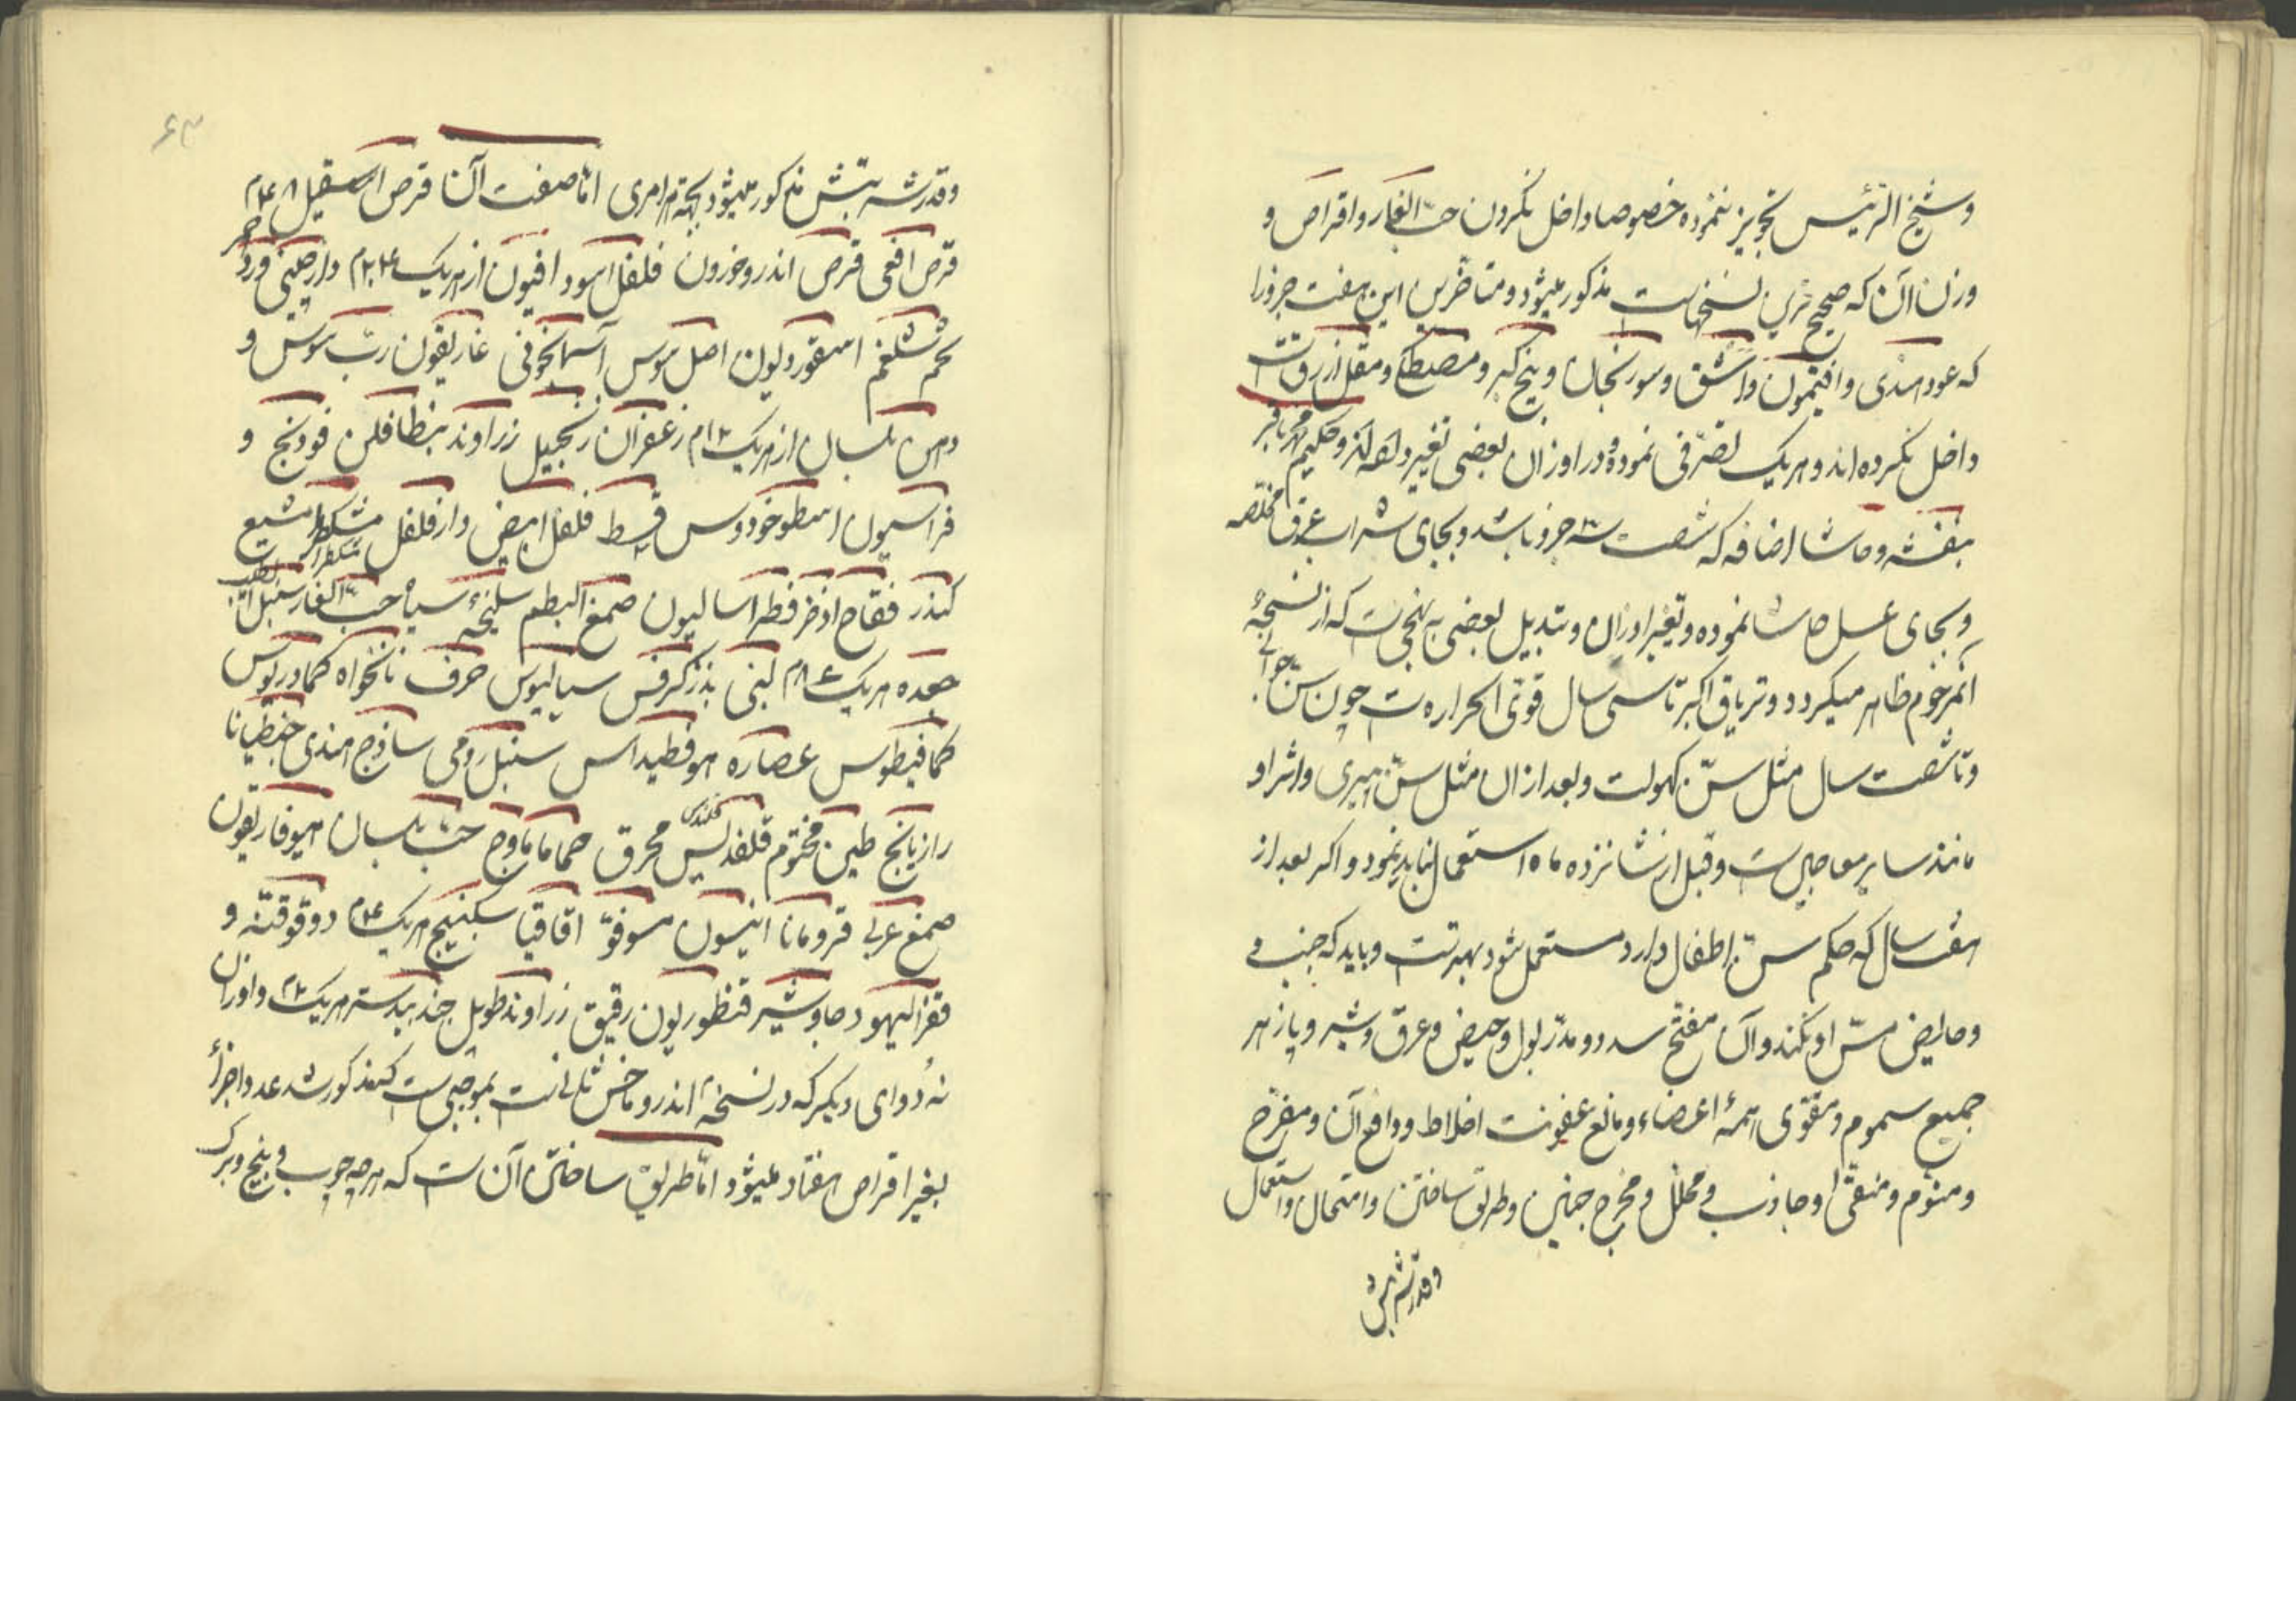 وشیخ الرئیس تجویز ننموده خصوصا داخل نکردن حب الغار و اقراص و
وزن آن که صحیح ترین نسخهاست مذکور میشود و متاخرین این هفت جزو را
که عود هندی و افتیمون و اشق و سورنجان و بیخ کبر و مصطکی و مقل ازرق است
داخل نکرده‌اند و هر یک تصرفی نموده و در اوزان بعضی تغیر داده‌اند و حکیم محمد باقر
بنفشه و ماشا اضافه که شصت سه جزو باشد و بجای شراب عرق مخلصه
و بجای عسل حاشا نموده و تغیر اوزان و تبدیل بعضی به نهجی است که از نسخهٔ
آنمرحوم ظاهر میکردد و تریاق اکبر تا سی سال قوی الحرارهٔ است چون سن جوانی
و تا شصت سال مثل سن کهولت و بعد از ان مثل سن پیری و اثر او
مانند سایر معاجین است و قبل از شانزده ماه استعمال نباید نمود و اکر بعد از
هفت سال که حکم سن اطفال دارد مستعمل شود بهتر است و باید که جنب و
و حایض مس او نکند و آن مفتح سدد و مدر بول و حیض و عرق و شیر و پازهر
جمیع سموم و مقوی همهٔ اعضاء و مانع عفونت اخلاط و دافع آن و مفرح
و منوم و منقی و جاذب و محلل و مخرج جنین و طریق ساختن و امتحان و استعمال
و قدر شربتش
۶۳
و قدر شربتش مذکور میشود بجهة هر امری اما صفت آن قرص اسقیل ۴۸م
قرص افعی قرص اندروخورون فلفل اسود افیون از هریک ۲۴م دارچینی ورد احمر
تخم شلغم اسقوردیون اصل سوس آسمانجونی غاریقون رب سوس و
دهن بلسان از هریک ۱۲م زعفران زنجبیل زراوند بنطافلن فودنج و
فراسیون اسطوخودوس قسط فلفل ابیض دارفلفل مشکطرامشیع
کندر فقاح اذخر فطراسالیون صمغ البطم سلیخهٔ سیاه حب الغار سنبل الطیب
جعده هریک ۸م لبنی بذر کرفس سیسالیوس حرف نانخواه کمادریوس
کمافیطوس عصاره هوفقطیداس سنبل رومی ساذج هندی جنطیانا
رازیانج طین مختوم قلقدیس محرق حماما وج حب بلسان هیوفاریقون
صمغ عربی قرومانا انیسون مو فو اقاقیا سکبینج هریک ۴م دوقو قنه و
قفر الیهود جاوشیر قنطوریون رقیق زراوند طویل جندبیدستر هریک ۲م و اوزان
نه دوای دیکر که در نسخهٔ اندروماخس ثانی است بموجبی است که مذکور شد عدد اجزأ
بغیر اقراص هفتاد میشود اما طریق ساختن آن است که هر چه چوب و بیخ و برک